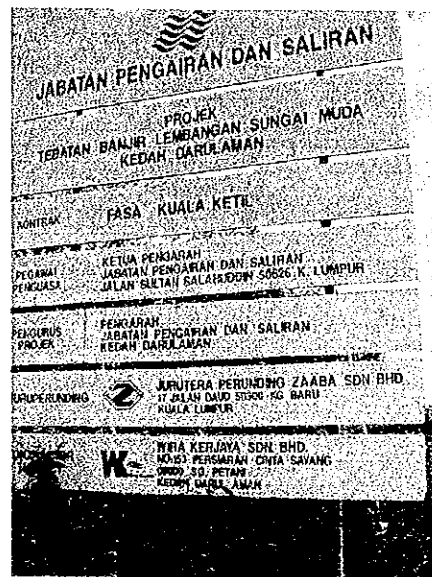 JABATAN PENGAIRAN DAN SALIRAN
PROJEK
TEBATAN BANJIR LEMBANGAN SUNGAI MUDA
KEDAH DARULAMAN
KONTRAK FASA KUALA KETIL
PEGAWAI PENGUASA
KETUA PENGARAH
JABATAN PENGAIRAN DAN SALIRAN
JALAN SULTAN SALAHUDDIN 50626 K. LUMPUR
PENGURUS PROJEK
PENGARAH
JABATAN PENGAIRAN DAN SALIRAN
KEDAH DARULAMAN
JURUPERUNDING
JURUTERA PERUNDING ZAABA SDN BHD
17 JALAN DAUD 50300 KG. BARU
KUALA LUMPUR
WIRA KERJAYA SDN BHD.
NO.153 PERSIARAN CINTA SAYANG
SG. PETANI
KEDAH DARUL AMAN